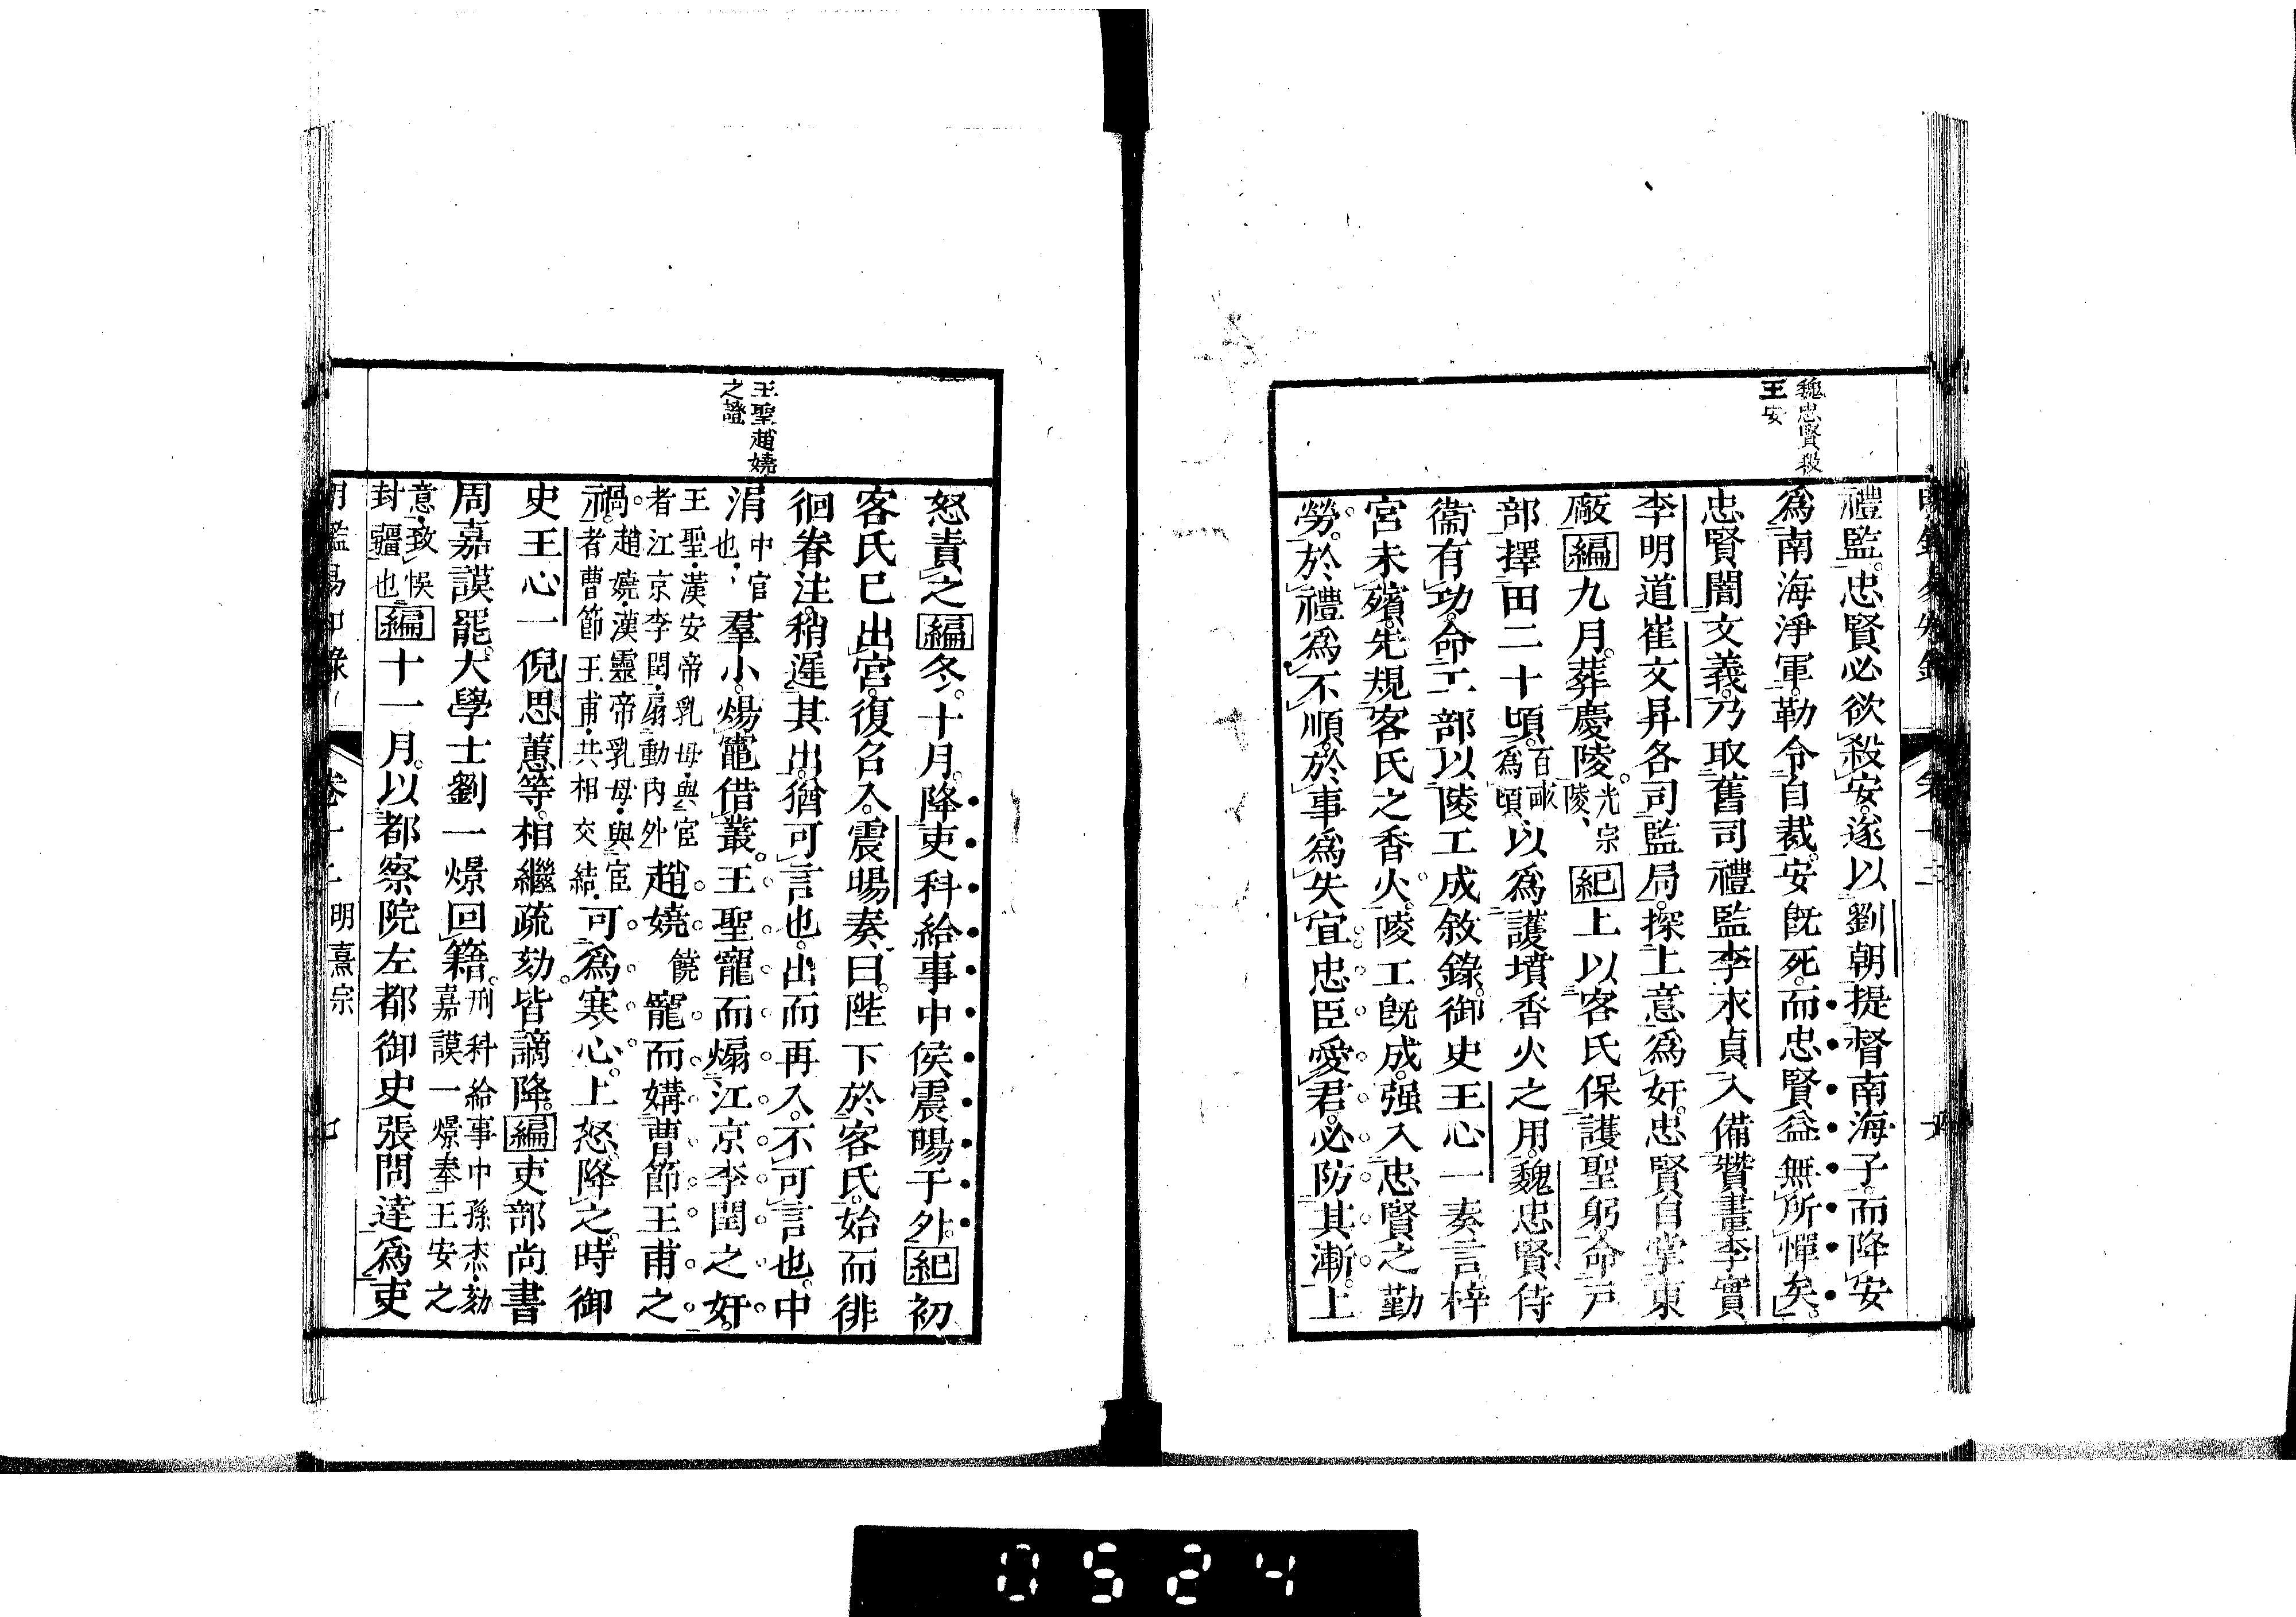 魏忠賢殺
王安
禮監。忠賢必欲殺安。遂以劉朝提督南海子。而降安
爲南海淨軍。勒令自裁。安旣死。而忠賢益無所憚矣。
忠賢闇文義。乃取舊司禮監李永貞入備贊畫。李實
李明道崔文昇各司監局。探上意爲奸。忠賢自掌東
廠編九月。葬慶陵。光宗陵、紀上以客氏保護聖躬。命戸
部擇田二十頃。百畝爲頃、以爲護墳香火之用。魏忠賢侍
衞有功。命工部以陵工成敘錄。御史王心一奏言梓
宮未殯。先規客氏之香火。陵工旣成。强入忠賢之勤
勞。於禮爲不順。於事爲失宜。忠臣愛君。必防其漸。上
王聖趙嬈
之證
怒責之編冬。十月。降吏科給事中侯震暘于外。紀初
客氏已出宮。復召入。震暘奏曰。陛下於客氏。始而徘
徊眷注。稍遲其出。猶可言也。出而再入。不可言也。中
涓中官也、羣小。煬竈借叢。王聖寵而煽江京李閏之奸。
王聖、漢安帝乳母、與宦者江京李閏、扇動內外趙嬈饒寵而媾曹節王甫之
禍。趙嬈、漢靈帝乳母、與宦者曹節王甫、共相交結、可爲寒心。上怒、降之。時御
史王心一倪思蕙等。相繼疏劾。皆謫降。編吏部尚書
周嘉謨罷。大學士劉一燝回籍。刑科給事中孫杰、劾嘉謨一燝奉王安之
意、致悞封疆也編十一月。以都察院左都御史張問達爲吏
卷十二 明熹宗 七
0524